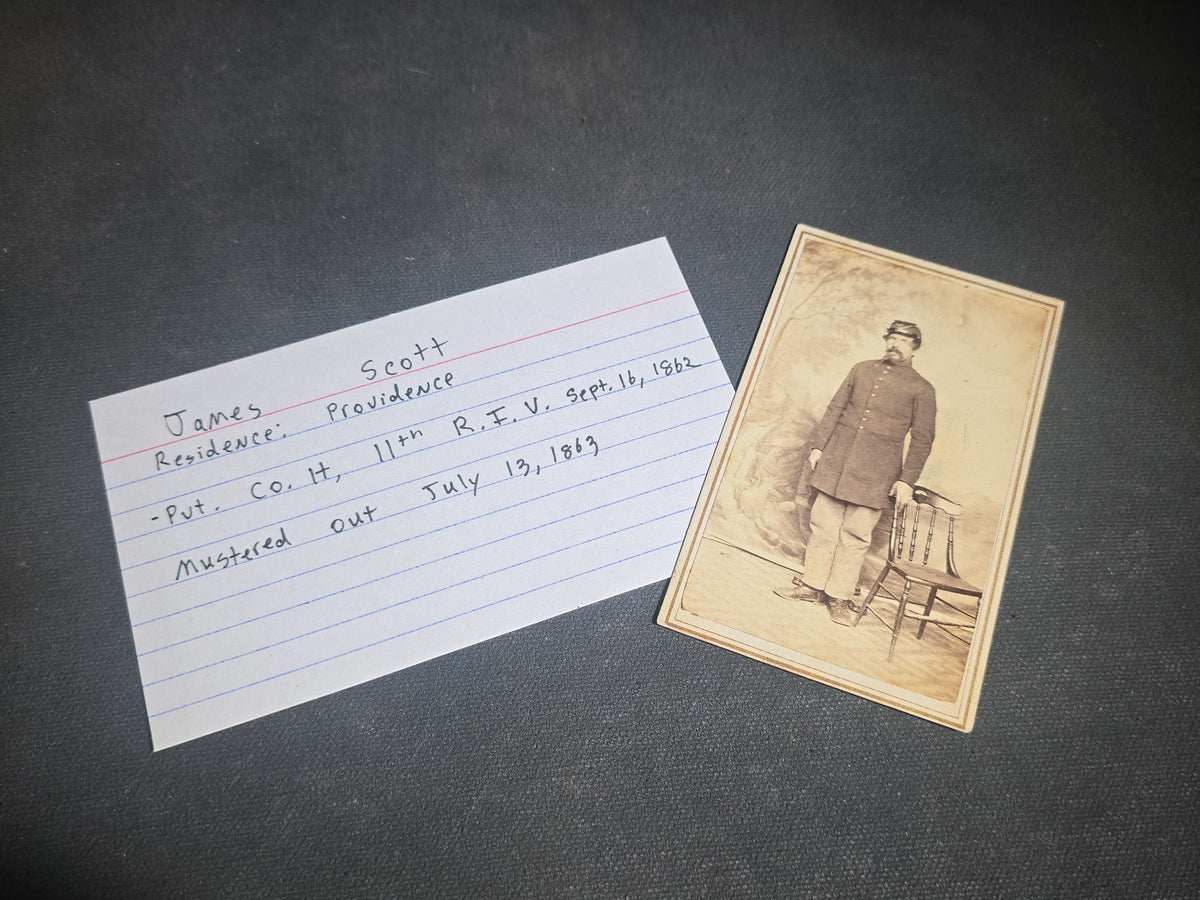 James Scott
Residence: Providence
-Pvt. Co. H, 11th R.I.V. Sept. 16, 1862
Mustered out July 13, 1863